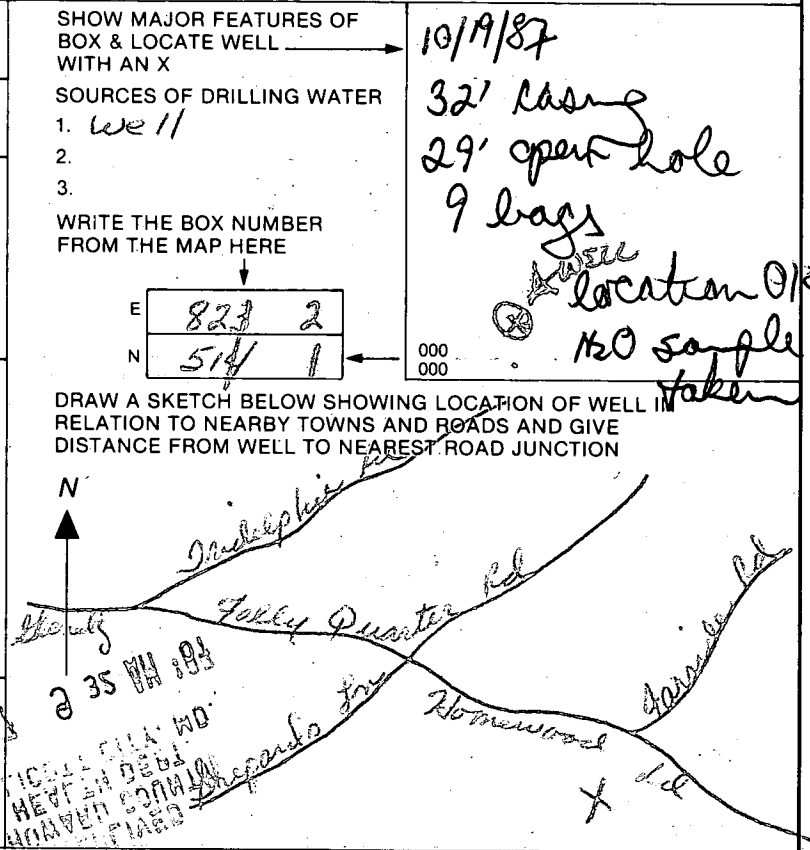 SHOW MAJOR FEATURES OF
BOX & LOCATE WELL
WITH AN X
SOURCES OF DRILLING WATER
1. well
2.
3.
WRITE THE BOX NUMBER
FROM THE MAP HERE
E 823 2
N 514 1
10/19/87
32' casing
29' open hole
9 bags
WELL
location OK
H2O sample
taken
000
000
DRAW A SKETCH BELOW SHOWING LOCATION OF WELL IN
RELATION TO NEARBY TOWNS AND ROADS AND GIVE
DISTANCE FROM WELL TO NEAREST ROAD JUNCTION
N
Triadelphia
Folly Quarter Rd
Shepards Ln
Homewood Rd
Rd
X
HEALTH DEPT.
HOWARD COUNTY